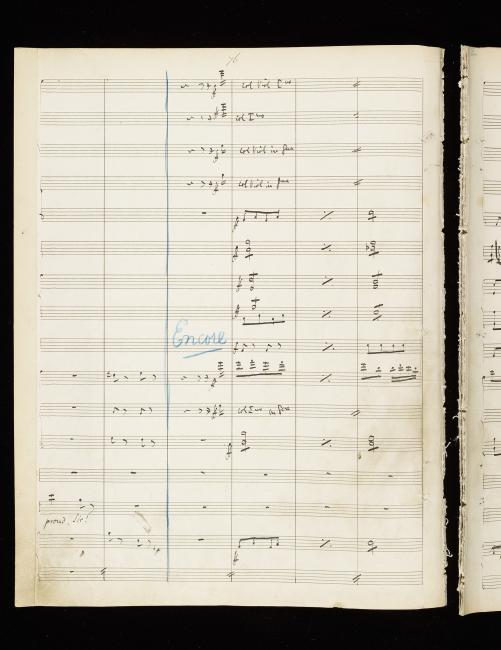 col Viol Imo
col Imo
col Viol in 8va
col Viol in 8va
Encore
col Imo in 8va
proud, Sir!